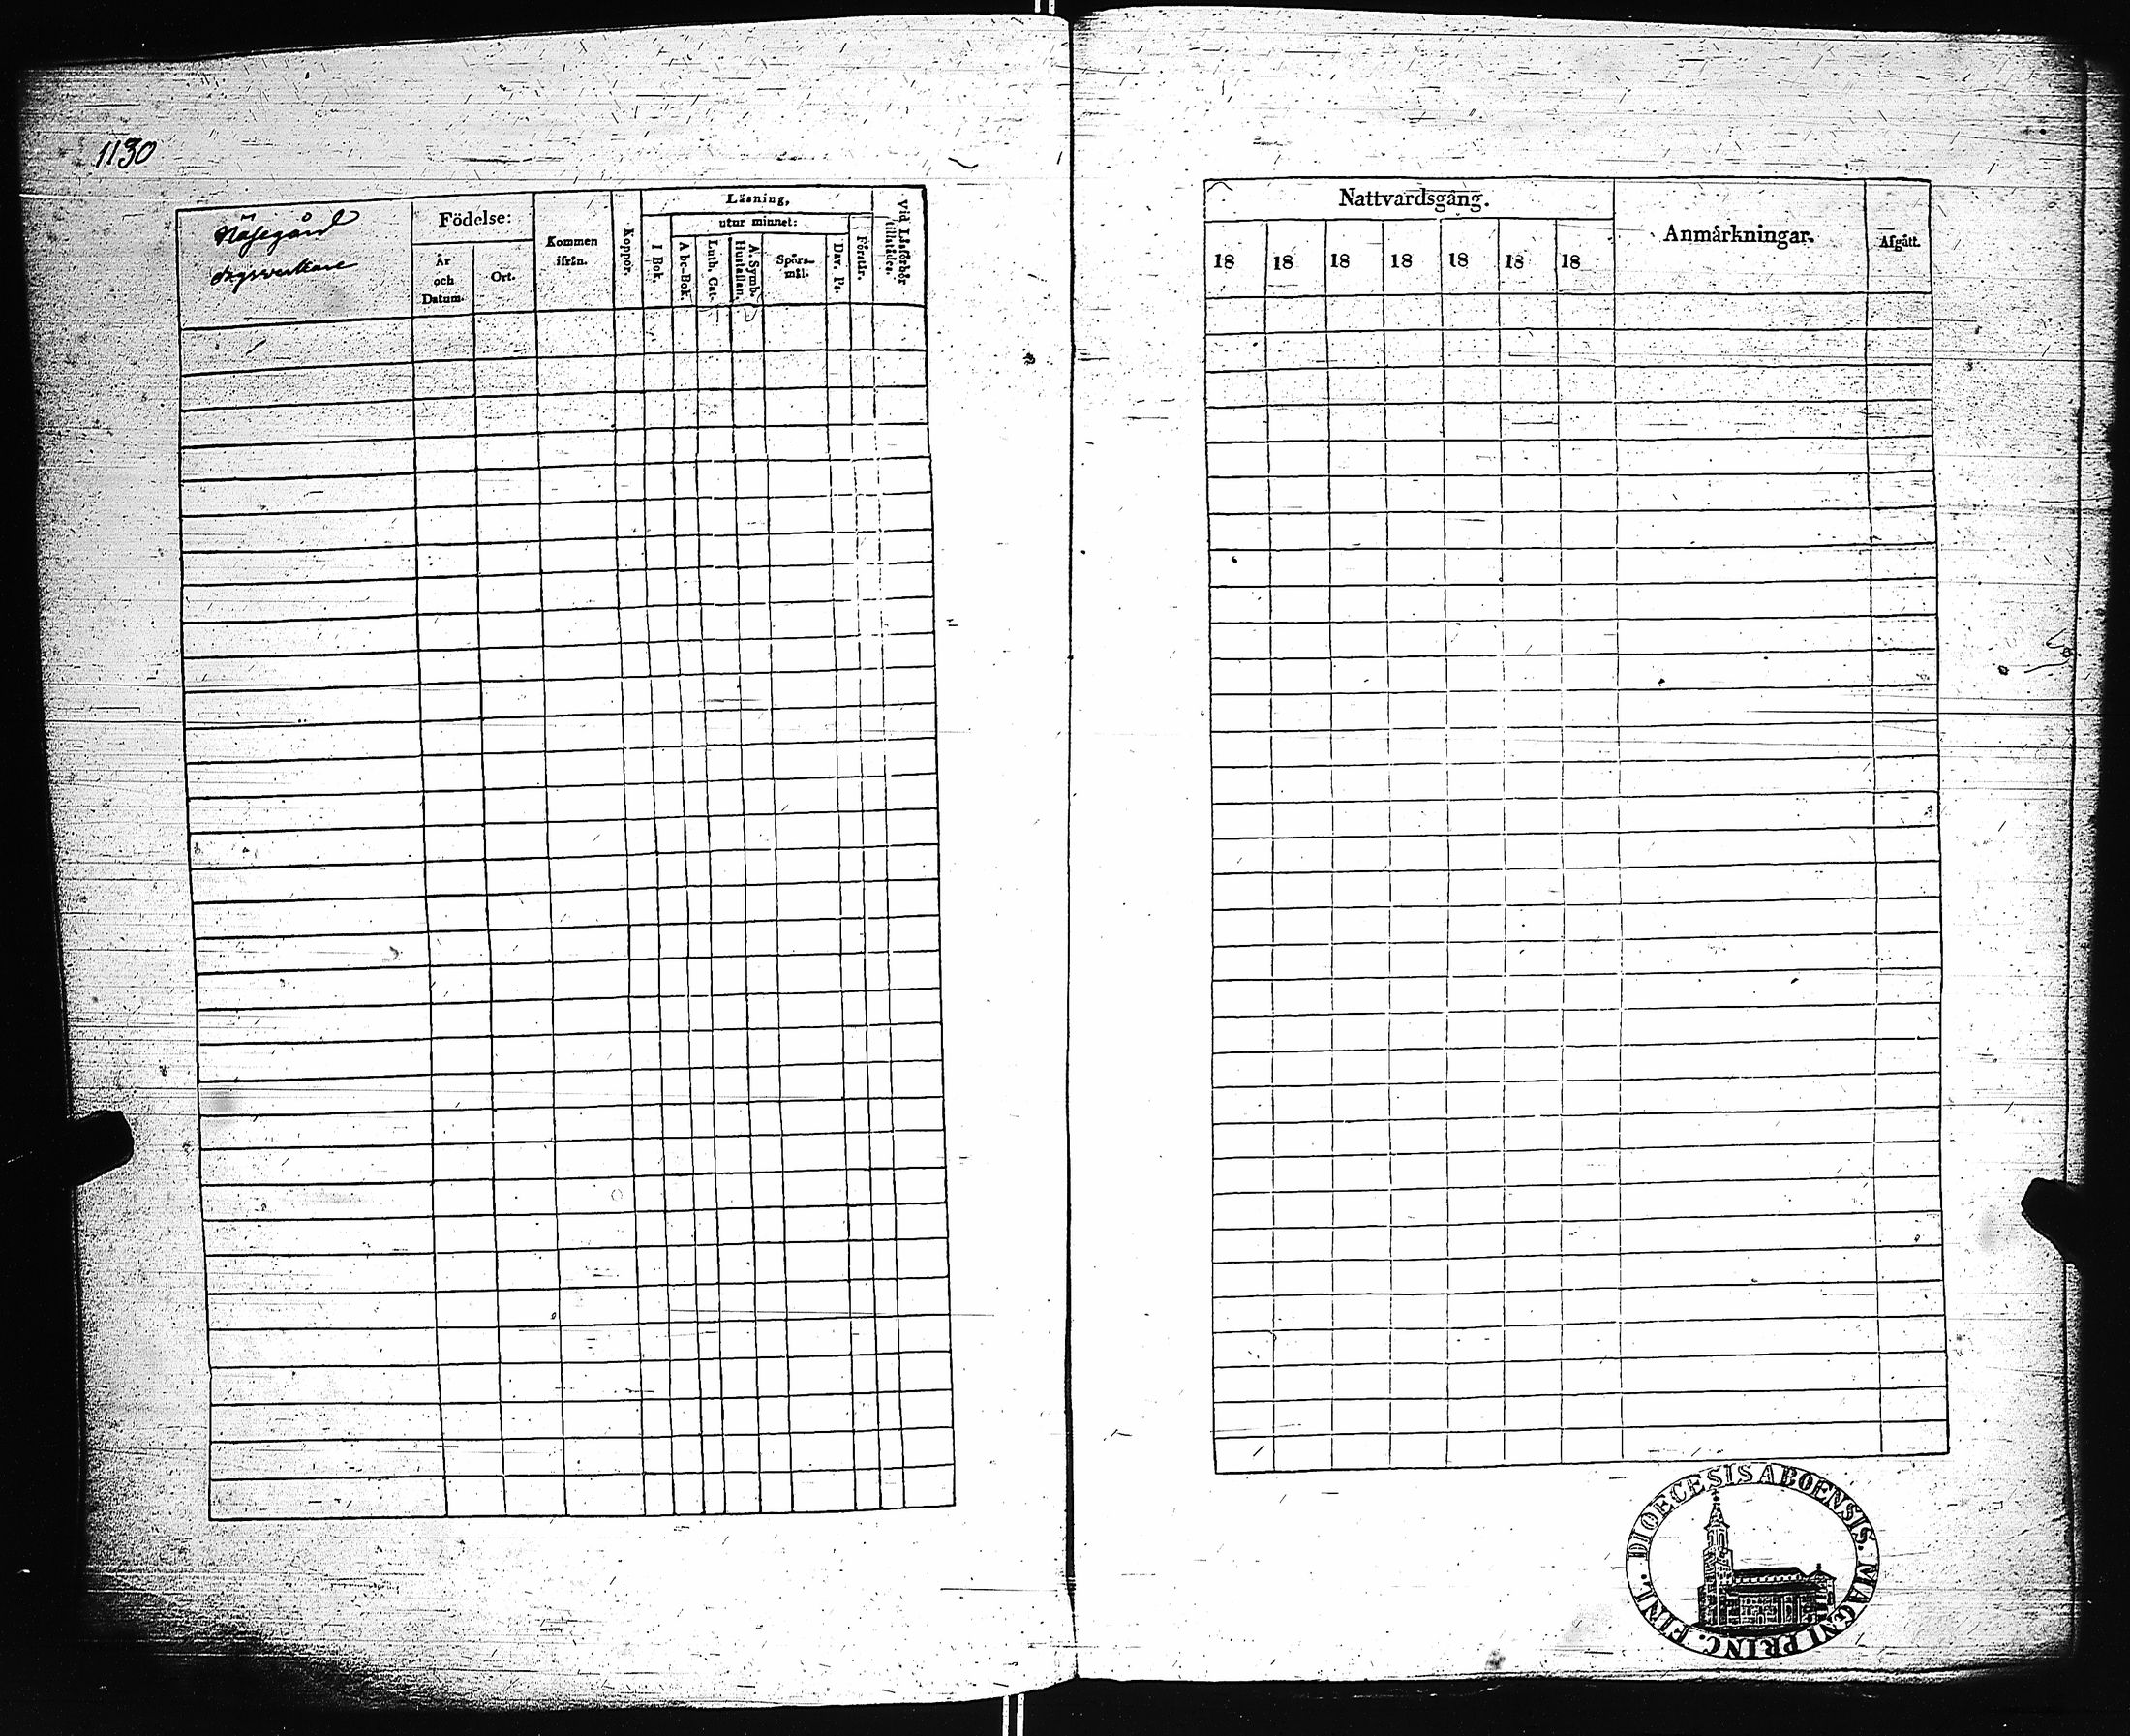 1130
Näsegård
dagsverkare
Födelse:
År
och
Datum.
Ort.
Kommen
ifrån.
Koppor.
Läsning,
utur minnet:
I Bok.
Abc-Bok.
Luth. Cat.
A. Symb.
Hustaflan.
Spörs-
mål.
Dav. Ps.
Förstår.
Vid Läsförhör
tillstädes.
Nattvardsgång.
18 18 18 18 18 18 18
Anmärkningar.
Afgått.
DIOECESIS ABOENSIS. MAGNI PRINC. FINL.